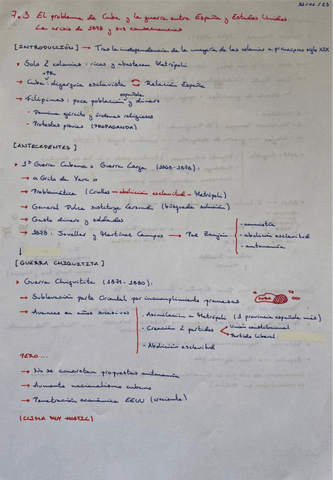 31/01/23
7.3 El problema de Cuba y la guerra entre España y Estados Unidos.
La crisis de 1898 y sus consecuencias
[INTRODUCCIÓN] → Tras la independencia de la mayoría de las colonias a principios siglo XIX
Solo 2 colonias: ricas y abastecen Metrópoli
Cuba: oligarquía esclavista Relación España
española
Filipinas: poca población y dinero
- Domina ejército y órdenes religiosas
- Protestas previas (PROPAGANDA)
[ANTECEDENTES]
1ª Guerra Cubana o Guerra Larga (1868-1878):
→ "Grito de Yara"
→ Problemática (Criollos - abolición esclavitud - Metrópoli)
→ General Dulce sustituye Lersundi (búsqueda solución)
→ Gasto dinero y soldados
→ 1878: Jovellar y Martínez Campos → Paz Zanjón
- amnistía
- abolición esclavitud
- autonomía
[GUERRA CHIQUITITA]
Guerra Chiquitita (1879-1880):
→ Sublevación parte Oriental por incumplimiento promesas
CUBA
→ Avances en años sucesivos
- Asimilación a Metrópoli (1 provincia española más)
- Creación 2 partidos
Unión constitucional
Partido liberal
- Abolición esclavitud
PERO...
→ No se concretan propuestas autonomía
→ Aumento nacionalismo cubano
→ Penetración económica EEUU (creciente)
(CLIMA MUY HOSTIL)